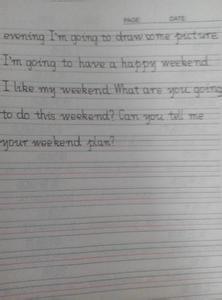 PAGE DATE
evening I'm going to draw some picture
I'm going to have a happy weekend
I like my weekend. What are you going
to do this weekend? Can you tell me
your weekend plan?